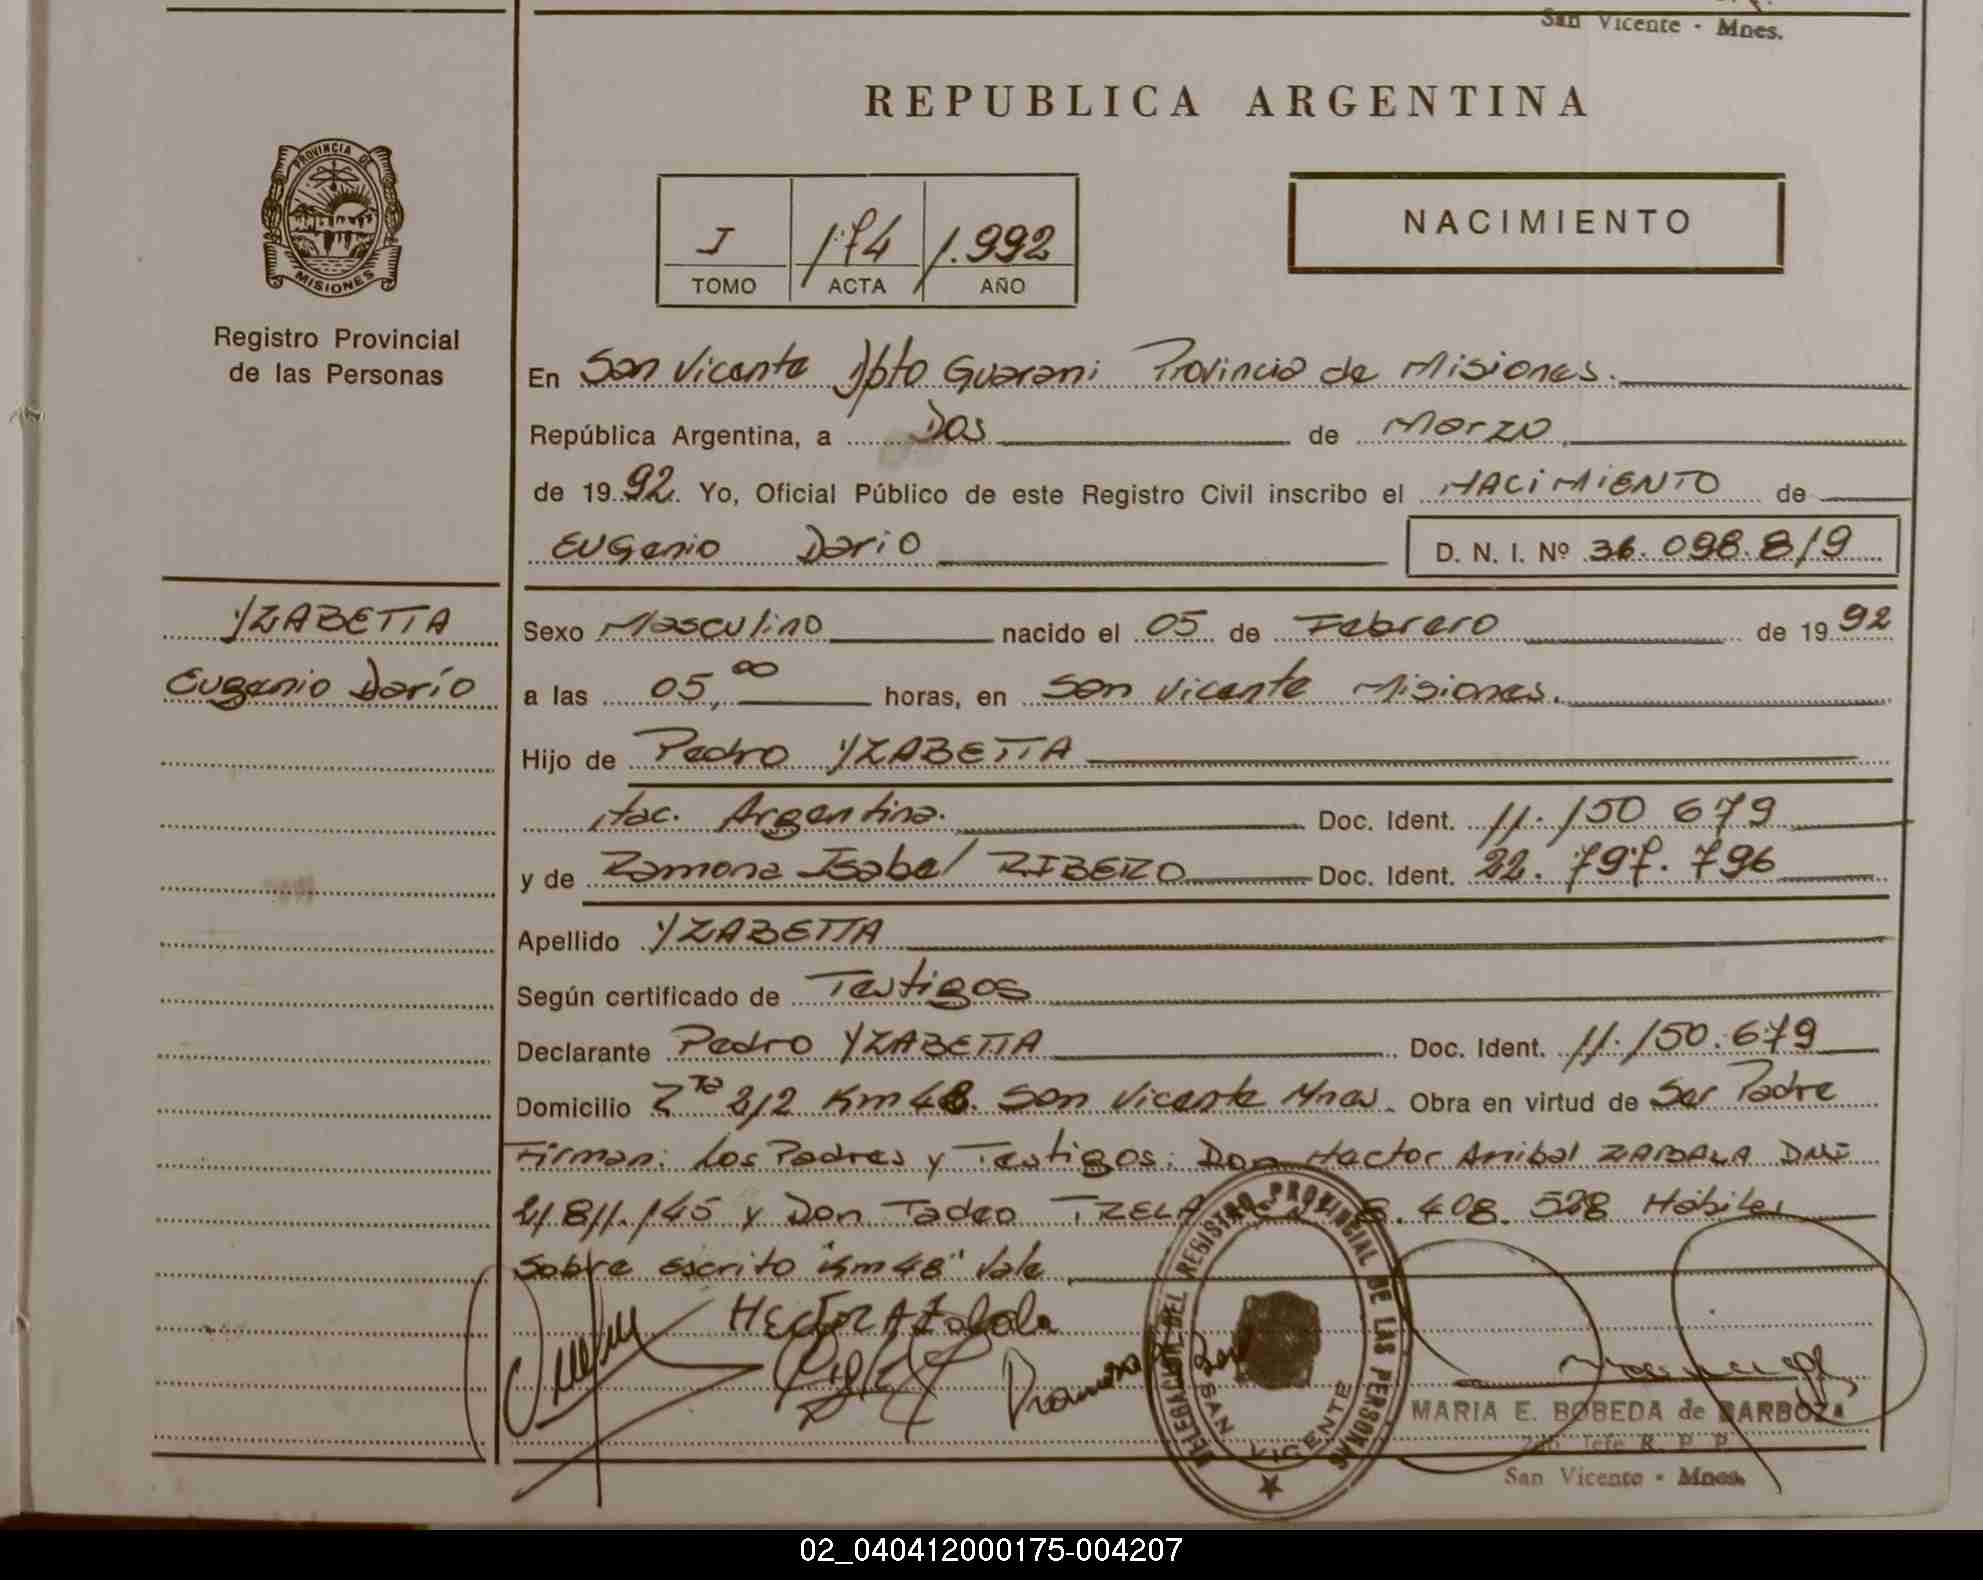 San Vicente - Mnes.
REPUBLICA ARGENTINA
PROVINCIA DE
MISIONES
Registro Provincial
de las Personas
I 174 1.992
TOMO ACTA AÑO
NACIMIENTO
En San Vicente Dpto Guarani Provincia de Misiones.
República Argentina, a Dos de Marzo
de 1992. Yo, Oficial Público de este Registro Civil inscribo el NACIMIENTO de
Eugenio Dario D. N. I. Nº 36.098.819
YZABETTA
Eugenio Darío
Sexo Masculino nacido el 05 de Febrero de 1992
a las 05,00 horas, en San Vicente Misiones.
Hijo de Pedro YZABETTA
Nac. Argentina. Doc. Ident. 11.150 679
y de Ramona Isabel RIBERO Doc. Ident. 22.797.796
Apellido YZABETTA
Según certificado de Testigos
Declarante Pedro YZABETTA Doc. Ident. 11.150.679
Domicilio Rta 212 Km 48. San Vicente Mnes. Obra en virtud de Ser Padre
Firman: Los Padres y Testigos: Don Hector Anibal ZABALA DNI
21.811.145 y Don Tadeo 8.408.528 Hábiles
Sobre escrito "Km 48" Vale
HECTOR A Zabala
Ramona
DELEGACION DEL REGISTRO PROVINCIAL DE LAS PERSONAS
SAN VICENTE
MARIA E. BOBEDA de BARBOZA
Jefe R. P. P.
San Vicente - Mnes.
02_040412000175-004207